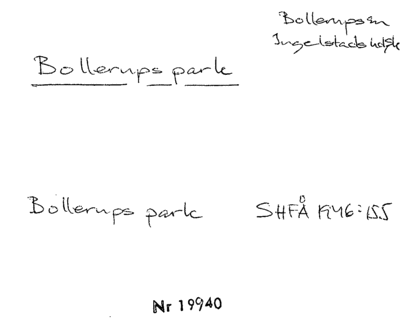 Bollerups sn
Ingelstads hd Sk
Bollerups park
Bollerups park SHFÅ 1946:155
Nr 19940